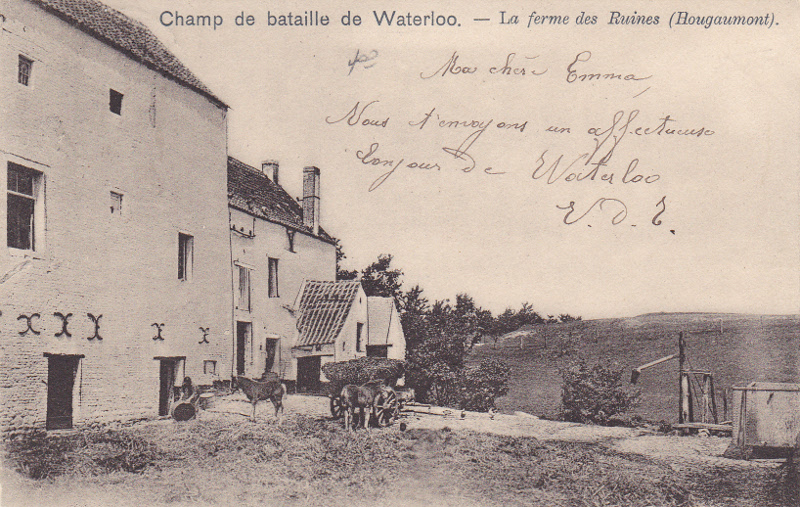 Champ de bataille de Waterloo. — La ferme des Ruines (Hougaumont).
Ma chère Emma,
Nous t'envoyons un affectueuse
bonjour de Waterloo